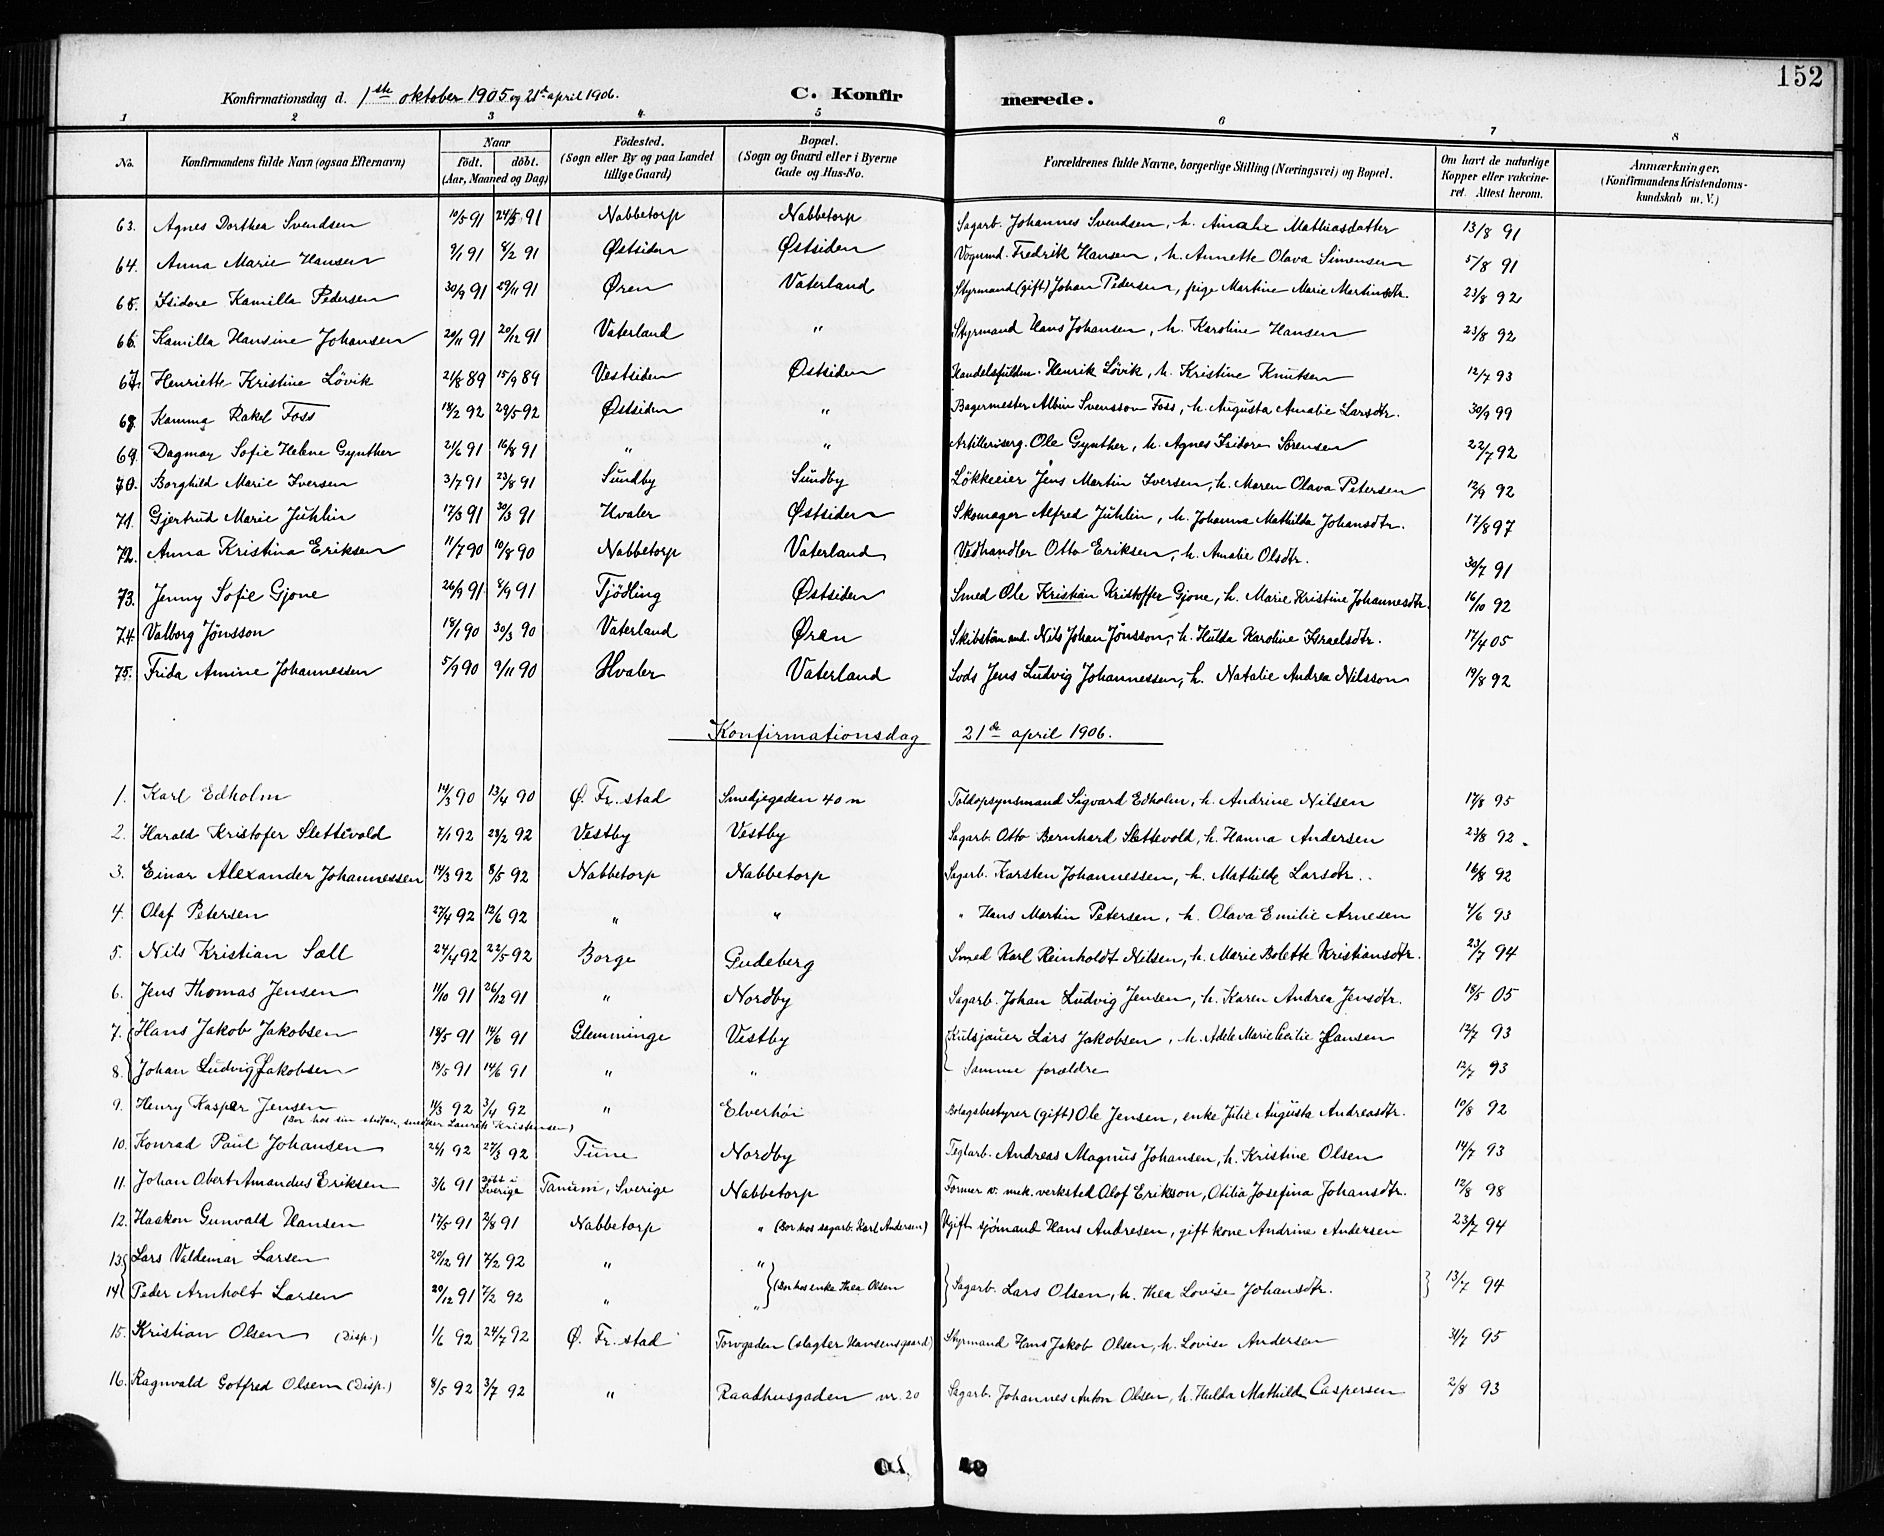 152
Konfirmationsdag d. 1ste oktober 1905 og 21de april 1906. C. Konfirmerede.
1 2 3 4. 5 6 7 8
No. Konfirmandens fulde Navn (ogsaa Efternavn) Naar födt. döbt. (Aar, Maaned og Dag) Födested. (Sogn eller By og paa Landet tillige Gaard) Bopæl. (Sogn og Gaard eller i Byerne Gade og Hus-No. Forældrenes fulde Navne, borgerlige Stilling (Næringsvei) og Bopæl. Om havt de naturlige Kopper eller vakcineret. Attest herom. Anmærkninger. (Konfirmandens Kristendomskundskab m. V.)
63. Agnes Dorthea Svendsen 10/5 91 24/5 91 Nabbetorp Nabbetorp Sagarb. Johannes Svendsen, h. Amalie Mathiasdatter 13/8 91
64. Anna Marie Hansen 9/1 91 8/2 91 Østsiden Østsiden Vognmd. Fredrik Hansen, h. Annette Olava Simensen 5/8 91
65. Isidore Kamilla Pedersen 30/9 91 29/11 91 Øren Vaterland Styrmand (gift) Johan Pedersen, pige Martine Marie Martinsdtr. 23/8 92
66. Kamilla Hansine Johansen 20/11 91 20/12 91 Vaterland " Styrmand Hans Johansen, h. Karoline Hansen 23/8 92
67. Henriette Kristine Lövik 21/8 89 15/9 89 Vestsiden Østsiden Handelsfuldm. Henrik Lövik, h. Kristine Knutsen 12/7 93
68. Kamma Rakel Foss 18/2 92 29/5 92 Østsiden " Bagermester Albin Svensson Foss, h. Augusta Amalie Larsdtr. 30/9 99
69. Dagmar Sofie Helene Gynther 21/6 91 16/8 91 " " Artilleriserg. Ole Gynther, h. Agnes Isidore Sörensen 22/7 92
70. Borghild Marie Iversen 3/7 91 23/8 91 Sundby Sundby Lökkeeier Jens Martin Iversen, h. Maren Olava Petersen 12/9 92
71. Gjertrud Marie Juhlin 17/3 91 30/3 91 Hvaler Østsiden Skomager Alfred Juhlin, h. Johanna Mathilda Johansdtr. 17/8 97
72. Anna Kristina Eriksen 11/7 90 10/8 90 Nabbetorp Vaterland Vedhandler Otto Eriksen, h. Amalie Olsdtr. 30/7 91
73. Jenny Sofie Gjone 26/9 91 8/9 91 Tjödling Østsiden Smed Ole Kristian Kristoffer Gjone, h. Marie Kristine Johannesdtr. 16/10 92
74. Valborg Jönsson 18/1 90 30/3 90 Vaterland Øren Skibstömmd. Nils Johan Jönsson, h. Hulda Karoline Israelsdtr. 17/4 05
75. Frida Amine Johannessen 5/9 90 9/11 90 Hvaler Vaterland Lods Jens Ludvig Johannessen, h. Natalie Andrea Nilsson 19/8 92
Konfirmationsdag 21de april 1906.
1. Karl Edholm 14/3 90 13/4 90 Ø. Fr.stad Smedjegaden 40 n Toldopsynsmand Sigvard Edholm, h. Andrine Nilsen 17/8 95
2. Harald Kristofer Slettevold 7/1 92 28/2 92 Vestby Vestby Sagarb. Otto Bernhard Slettevold, h. Hanna Andersen 23/8 92.
3. Einar Alexander Johannessen 14/3 92 8/5 92 Nabbetorp Nabbetorp Sagarb. Karsten Johannessen, h. Mathilde Larsdtr. 16/8 92
4. Olaf Petersen 27/4 92 12/6 92 " " " Hans Martin Petersen, h. Olava Emilie Arnesen 4/6 93
5. Nils Kristian Sæll 24/4 92 22/5 92 Borge Gudeberg Smed Karl Reinholdt Nilsen, h. Marie Bolette Kristiansdtr. 23/7 94
6. Jens Thomas Jensen 11/10 91 26/12 91 " Nordby Sagarb. Johan Ludvig Jensen, h. Karen Andrea Jensdtr. 18/5 05
7. Hans Jakob Jakobsen 18/5 91 14/6 91 Glemminge Vestby Kulsjauer Lars Jakobsen, h. Adele Marie Cecilie Hansen 12/7 93
8. Johan Ludvig Jakobsen 18/5 91 14/6 91 " " Samme forældre 12/7 93
9. Henry Kasper Jensen 11/3 92 3/4 92 " Elverhöi Bolagsbestyrer (gift) Ole Jensen, enke Julie Augusta Andreasdtr. 10/8 92
(Bor hos sin stiffar, snedker Laurits Kristensen)
10. Konrad Paul Johansen 24/1 92 27/3 92 Tune Nordby Teglarb. Andreas Magnus Johansen, h. Kristine Olsen 14/7 93
11. Johan Obert Amandus Eriksen 3/6 91 Döbt i Sverige Tanum, Sverige Nabbetorp Former v. mek. verksted Olof Erikson, Otilia Josefina Johansdtr. 12/8 98
12. Haakon Gunvald Hansen 17/5 91 2/8 91 Nabbetorp " (Bor hos sagarb. Karl Andersen) Ugift sjömand Hans Andresen, gift kone Andrine Andersen 23/7 94
13. Lars Valdemar Larsen 20/12 91 7/2 92 " "
14. Peder Arnholt Larsen 20/12 91 7/2 92 " " (Bor hos enke Thea Olsen Sagarb. Lars Olsen, h. Thea Lovise Johansdtr. 13/7 94
15. Kristian Olsen (Disp.) 1/6 92 24/7 92 Ø. Fr.stad Torvgaden (slagter Hansensgaard) Styrmand Hans Jakob Olsen, h. Lovise Andersen 31/7 95
16. Ragnvald Gotfred Olsen (Disp.) 8/5 92 3/7 92 " Raadhusgaden nr. 20 Sagarb. Johannes Anton Olsen, h. Hulda Mathilde Caspersen 2/8 93